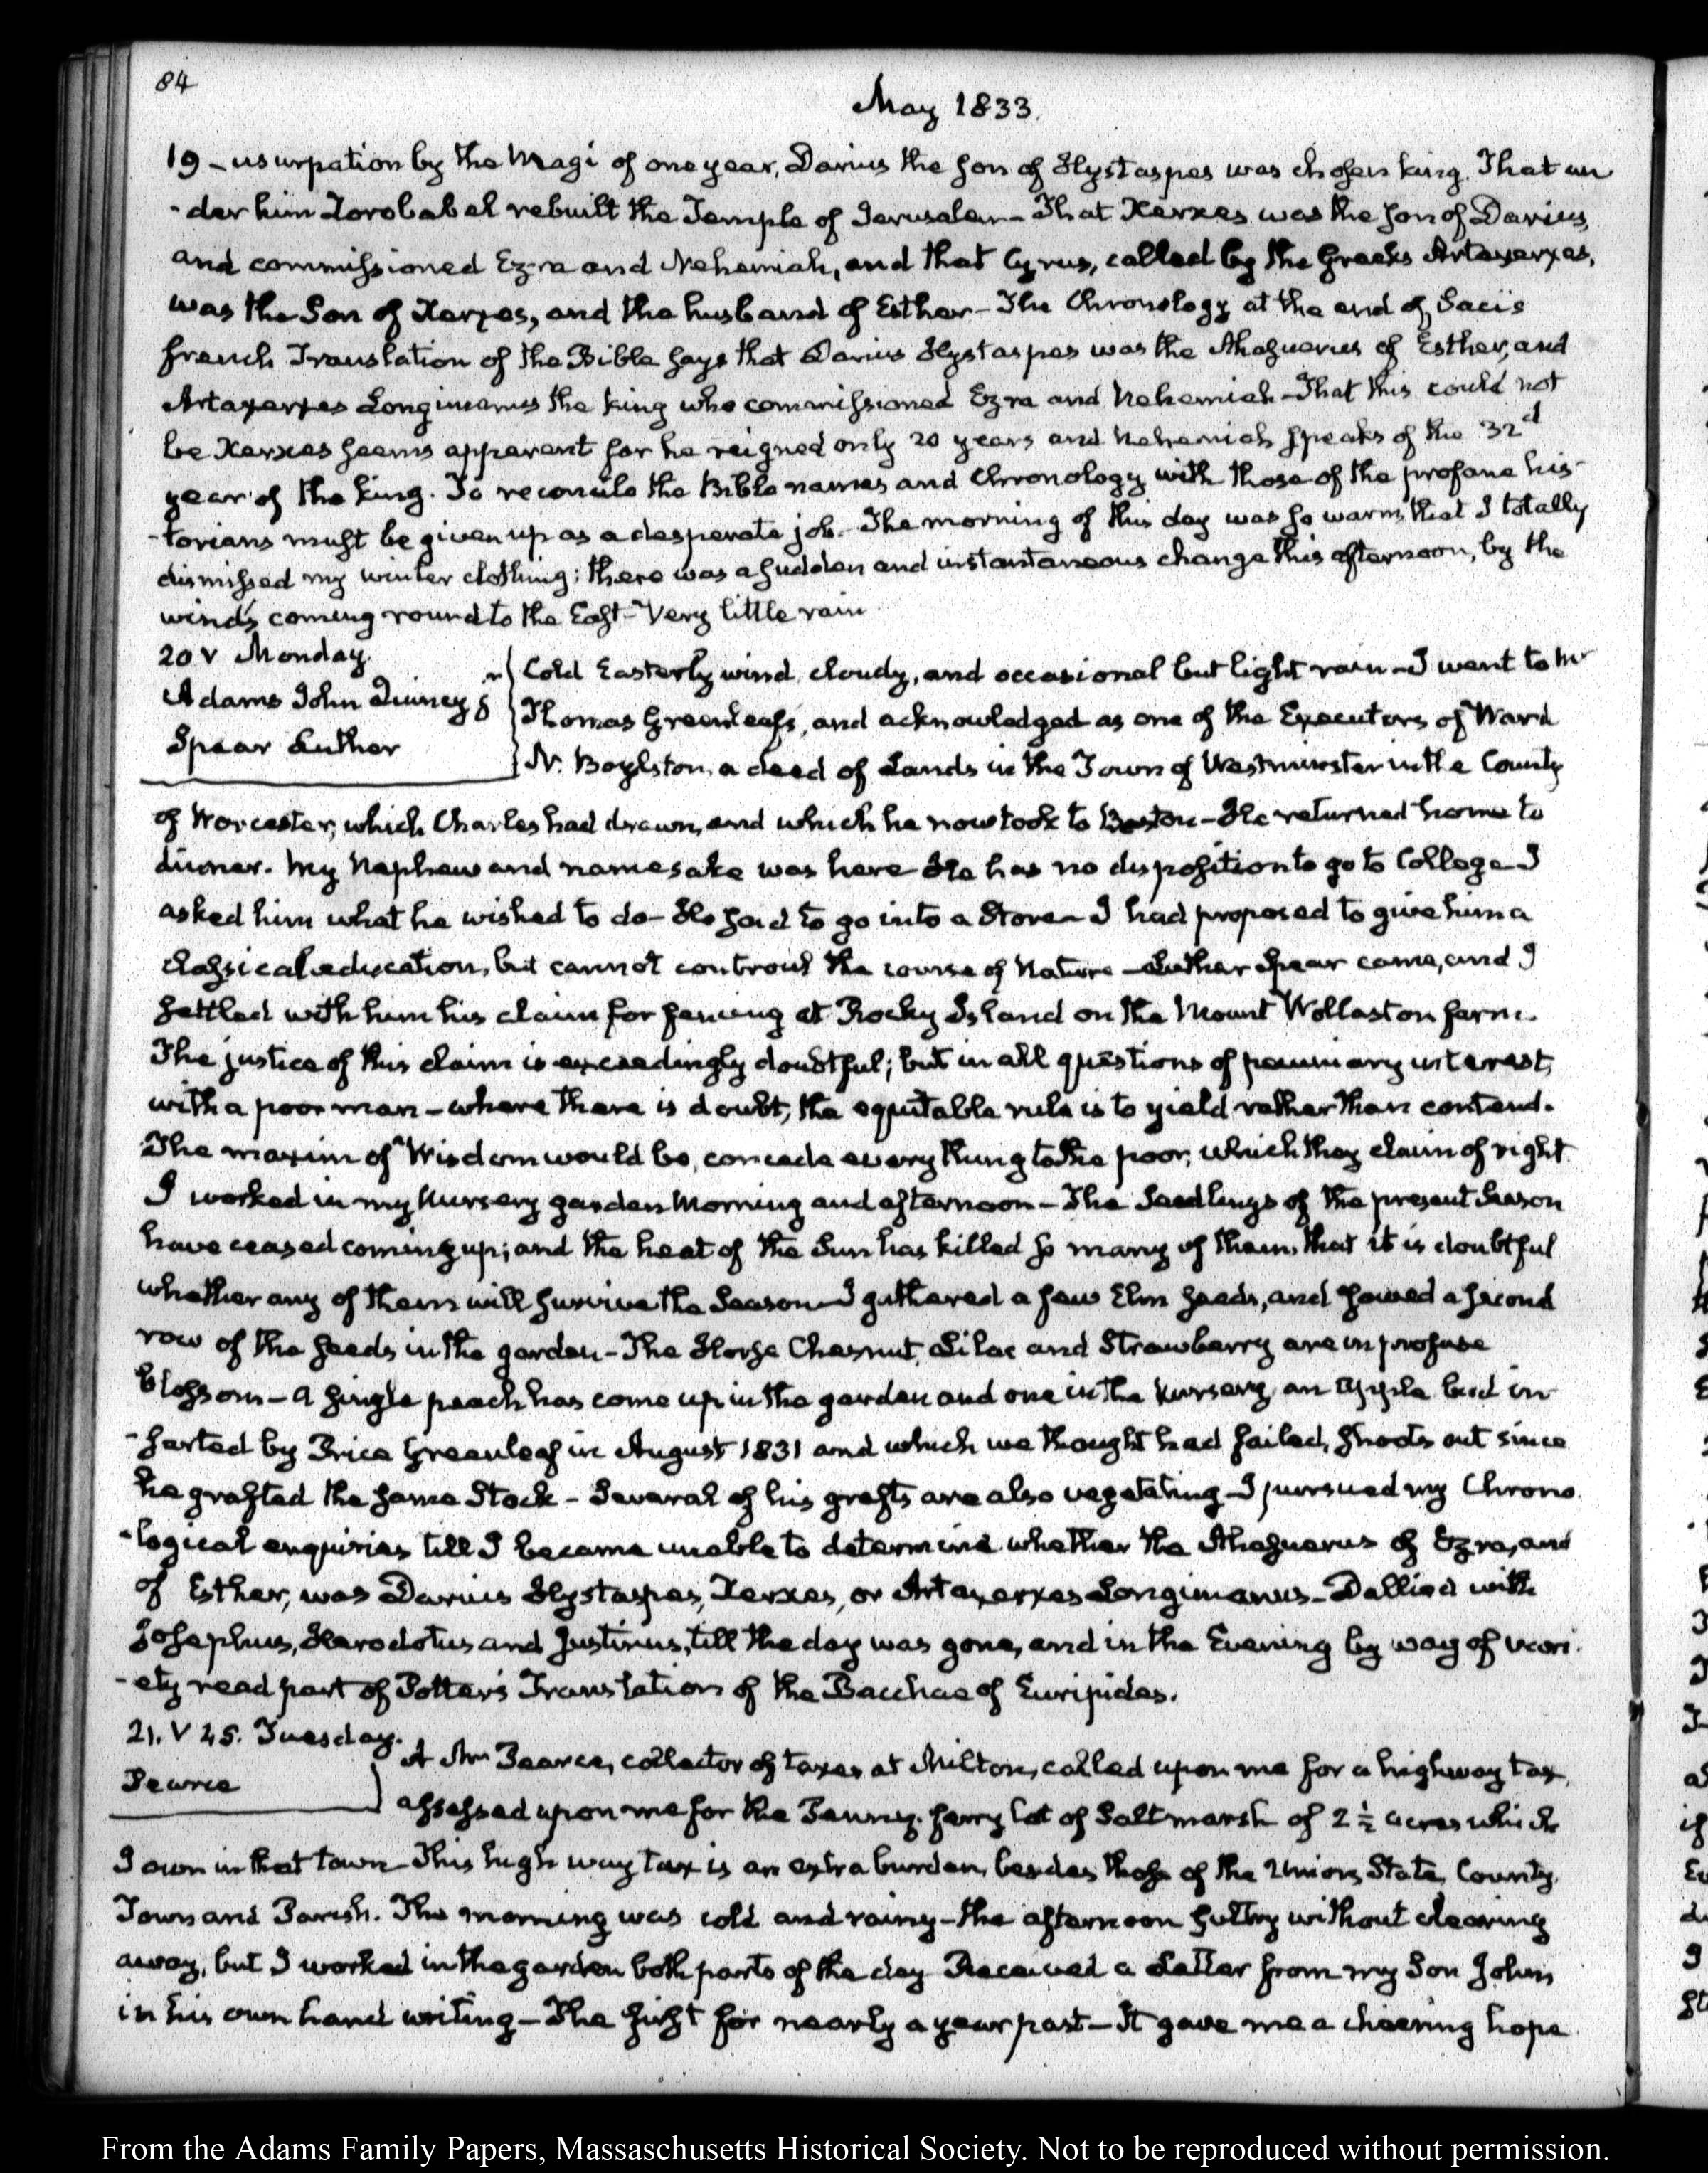 84
May 1833.
19 - usurpation by the Magi of one year, Darius the son of Hystaspes was chosen king. That un
-der him Zorobabel rebuilt the Temple of Jerusalem - That Xerxes was the son of Darius,
and commissioned Ezra and Nehemiah, and that Cyrus, called by the Greeks Artaxerxes,
was the Son of Xerxes, and the husband of Esther - The Chronology at the end of Saci's
french Translation of the Bible says that Darius Hystaspes was the Ahasuerus of Esther, and
Artaxerxes Longimanus the king who commissioned Ezra and Nehemiah - That this could not
be Xerxes seems apparent for he reigned only 20 years and Nehemiah speaks of the 32d
year of the king. To reconcile the Bible names and Chronology with those of the profane his
-torians must be given up as a desperate job. The morning of this day was so warm that I totally
dismissed my winter clothing; there was a sudden and instantaneous change this afternoon, by the
wind's coming round to the East - Very little rain
20 V Monday.
Adams John Quincy
Spear Luther
Cold Easterly wind, cloudy, and occasional but light rain - I went to Mr
Thomas Greenleaf's, and acknowledged as one of the Executors of Ward
N. Boylston, a deed of Lands in the Town of Westminster in the County
of Worcester, which Charles had drawn, and which he now took to Boston - He returned home to
dinner. My Nephew and namesake was here He has no disposition to go to College I
asked him what he wished to do - He said to go into a Store - I had proposed to give him a
classical education, but cannot controul the course of Nature - Luther Spear came, and I
settled with him his claim for fencing at Rocky Island on the Mount Wollaston farm.
The justice of this claim is exceedingly doubtful; but in all questions of pecuniary interest,
with a poor man - where there is doubt, the equitable rule is to yield rather than contend.
The maxim of Wisdom would be, concede every thing to the poor, which they claim of right.
I worked in my Nursery garden Morning and afternoon - The Seedlings of the present Season
have ceased coming up; and the heat of the Sun has killed so many of them, that it is doubtful
whether any of them will survive the Season - I gathered a few Elm seeds, and sowed a second
row of the seeds in the garden - The Horse Chesnut, Lilac and Strawberry are in profuse
blossom - a single peach has come up in the garden and one in the Nursery, an Apple bud in
-serted by Price Greenleaf in August 1831 and which we thought had failed, shoots out since
he grafted the same Stock - Several of his grafts are also vegetating - I pursued my Chrono
-logical enquiries till I became unable to determine whether the Ahasuerus of Ezra, and
of Esther, was Darius Hystaspes, Xerxes, or Artaxerxes Longimanus - Dallied with
Josephus, Herodotus and Justinus, till the day was gone, and in the Evening by way of vari
-ety read part of Potter's Translation of the Bacchae of Euripides.
21. V 45. Tuesday.
Pearce
A Mr Pearce, collector of taxes at Milton, called upon me for a highway tax,
assessed upon me for the Penny-ferry lot of Salt marsh of 2 ½ acres which
I own in that town - This high way tax is an extra burden, besides those of the Union, State, County,
Town and Parish. The morning was cold and rainy - the afternoon sultry without clearing
away, but I worked in the garden both parts of the day Received a Letter from my Son John,
in his own hand writing - The first for nearly a year past - It gave me a cheering hope
From the Adams Family Papers, Massaschusetts Historical Society. Not to be reproduced without permission.